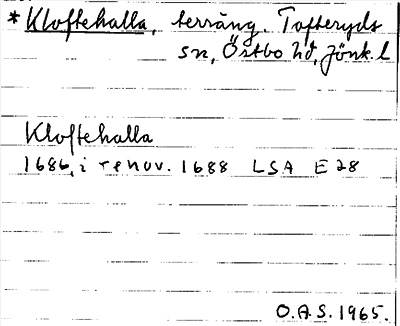 * Kloftehalla, terräng. Tofteryds
sn, Östbo hd, Jönk. l
Kloftehalla
1686, i renov. 1688 LSA E 28
O.A.S. 1965.